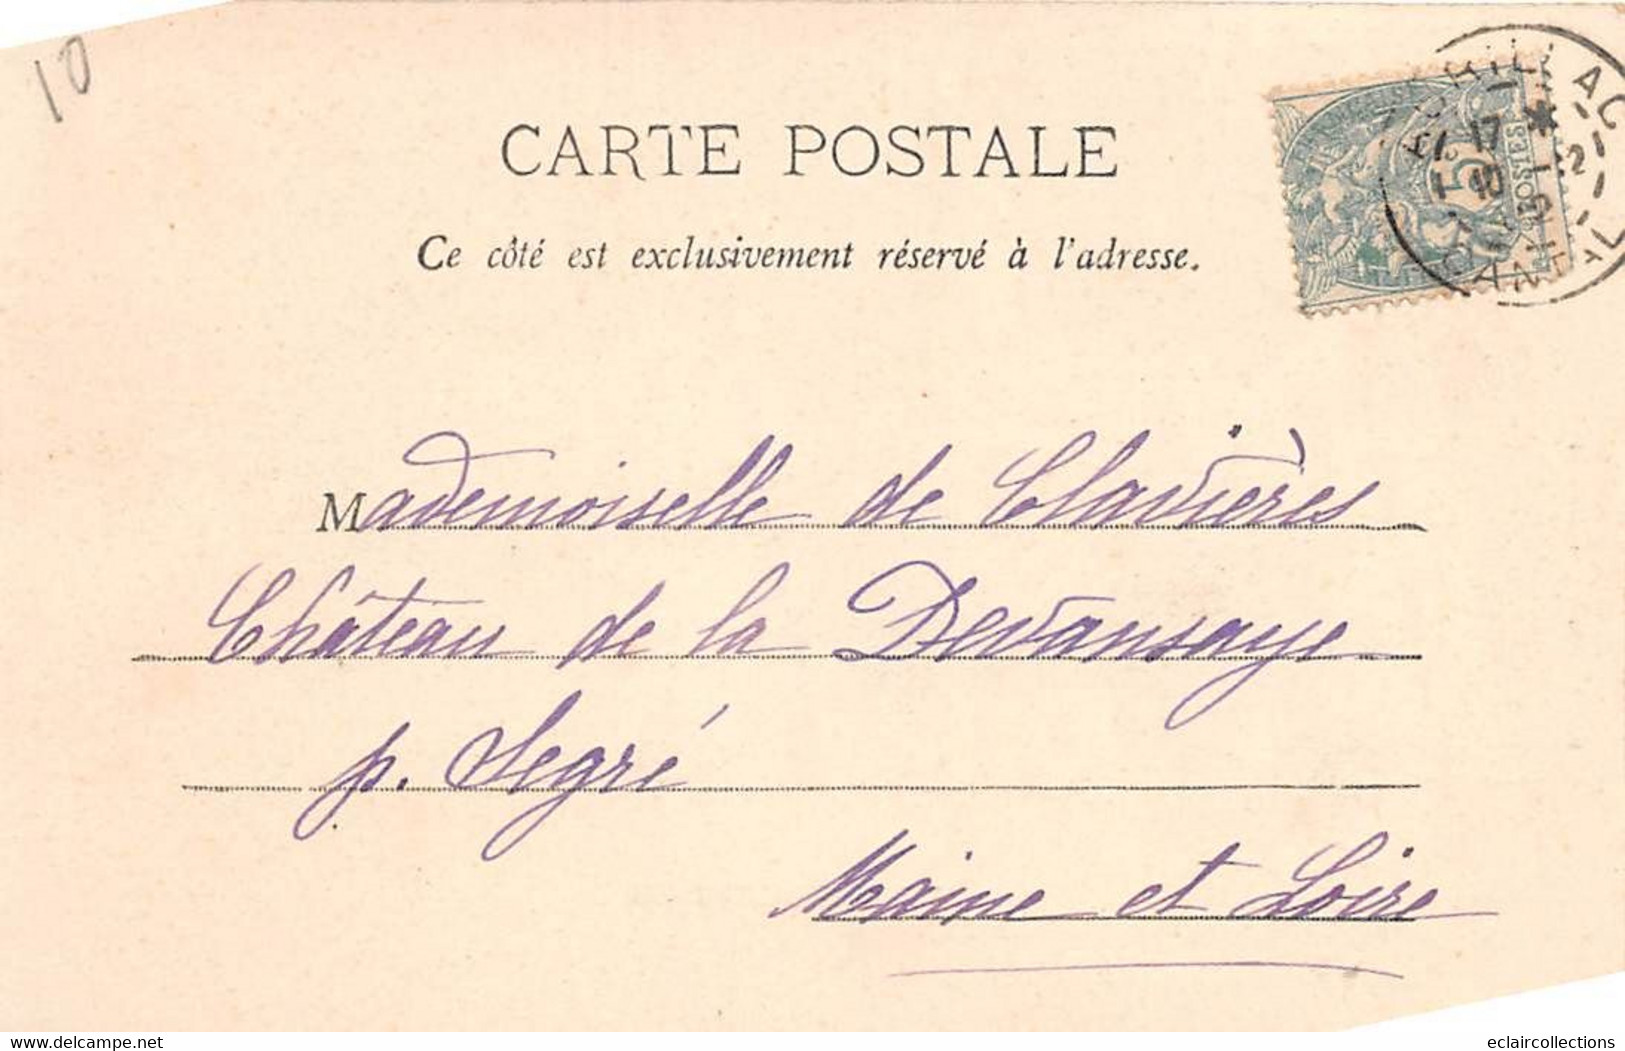 10
CARTE POSTALE
Ce côté est exclusivement réservé à l'adresse.
AURILLAC
CANTAL
POSTES
5
Mademoiselle de Clavières
Château de la Devansaye
p. Segré
Maine et Loire
delcampe.net
eclaircollections